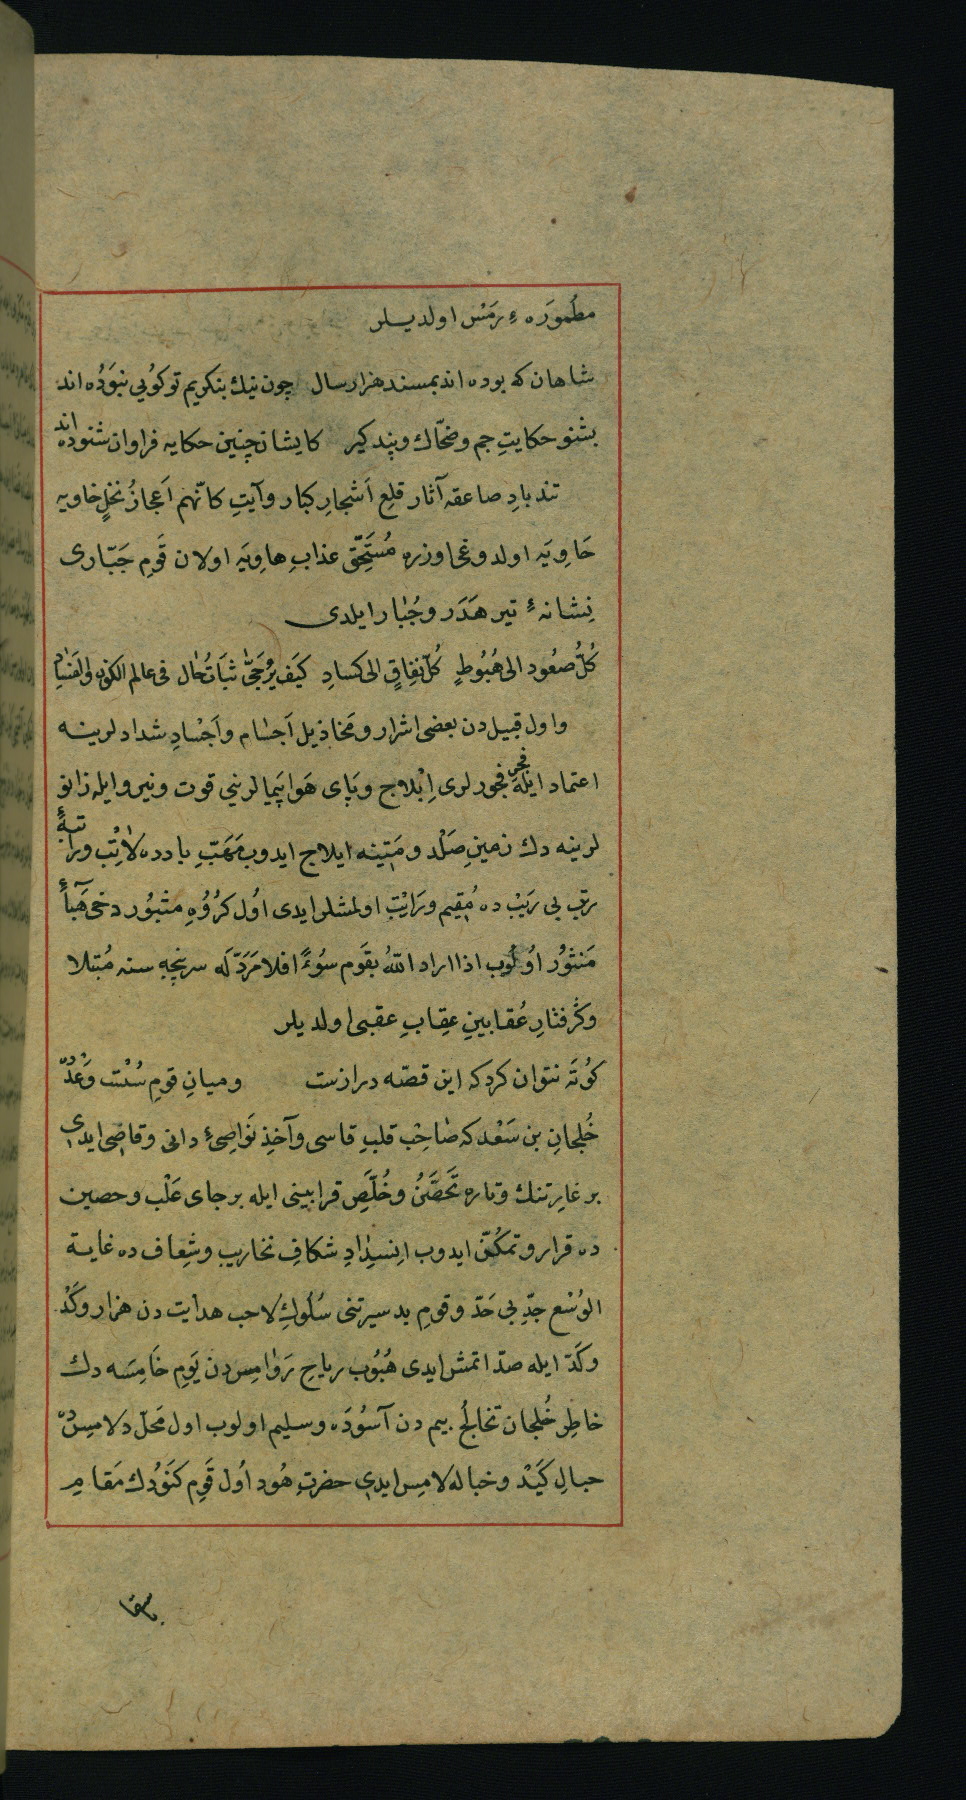 مطمُورَه ءِ رَمْس اولدیلر
شاهان که بوده اند بمسند هزار سال چون نیك بنکریم تو کوُیی نبَودُه اند
بشنو حکایتِ جم وضحّاك وپند کیر کایشان چنین حکایه فراوان شنوده اند
تند بادِ صاعقه آثار قلعِ اَشجارِ کبار وآیتِ کانّهم اَعجازُ نخلٍ خاویه
حَاوِیَه اولدوغی اوزره مُستَحِقّ عذابِ هاوِیَه اولان قَومِ جَبّاری
نِشانهٔ تیر هَدَر وجُبار ایلدی
کُلُّ صعُود الی هُبُوطٍ کُلّ نِفاقٍ الی کسادِ کیَف یُرجَجّٰی ثبَاتُ حٰال فی عالم الکون والفَسٰادِ
واول قبیلدن بعضی اشرار ومَخاذیل اَجسٰام واَجْسادِ شداد لرینه
اعتماد ایله فجّ فجور لری اِبْلاج وپَای هَوا پَیما لرینی قوت ونیرو ایله زانو
لرینه دك زمینِ صَلْد ومَتِینه ایلاج ایدوب مَهَبّ بادده لاٰتِب وراتبهٔ
رتب بی رَیْب ده مُقِیم ورَایْتِ اولمشلر ایدی اوُل کرُوُهِ مثبُور دخی هَبآءً
مَنثوُر اوُلوُب اذا اراد اللّٰهُ بقَوم سُوءً افلا مَرَدّ لَه سرپنچهِ سنه مُبتلا
وکرفتارِ عُقابینِ عِقابِ عقبی اولدیلر
کوُتَه نتوان کرد که این قصّه درازست ومیانِ قومِ سُست وَعُدّ
خُلجانِ بن سَعْد که صٰاحِب قلبِ قاسی وآخذِ نَواصِیءِ دانی وقاضِی ایدی
بر غارِ تنك وتاره تَحَصَّنُ وخُلَّصِ قرابینی ایله بر جای عَلْب وحصین
ده قرار وتمکّن ایدوب اِنسِدٰادِ شکافِ نخاریب وشِعاف ده غایة
الوُسْع جدِّ بی حَدّ وقومِ بد سیرتنی سُلوُكِ لاحب هدایت دن هزار وکَدْ
وکَدّ ایله صدّ اتمش ایدی هُبوُب ریاحِ رَوٰامِس دن یَومِ خَامِسَه دك
خاطِرِ خُلجان تخالُجِ بیم دن آسوُدَه وسلیم اولوب اول مَحلّ دلامِس ده
حبالِ کَیْد وخباله لامِس ایدی حضرتِ هُود اوُل قَومِ کَنَوُدك مَقامِ